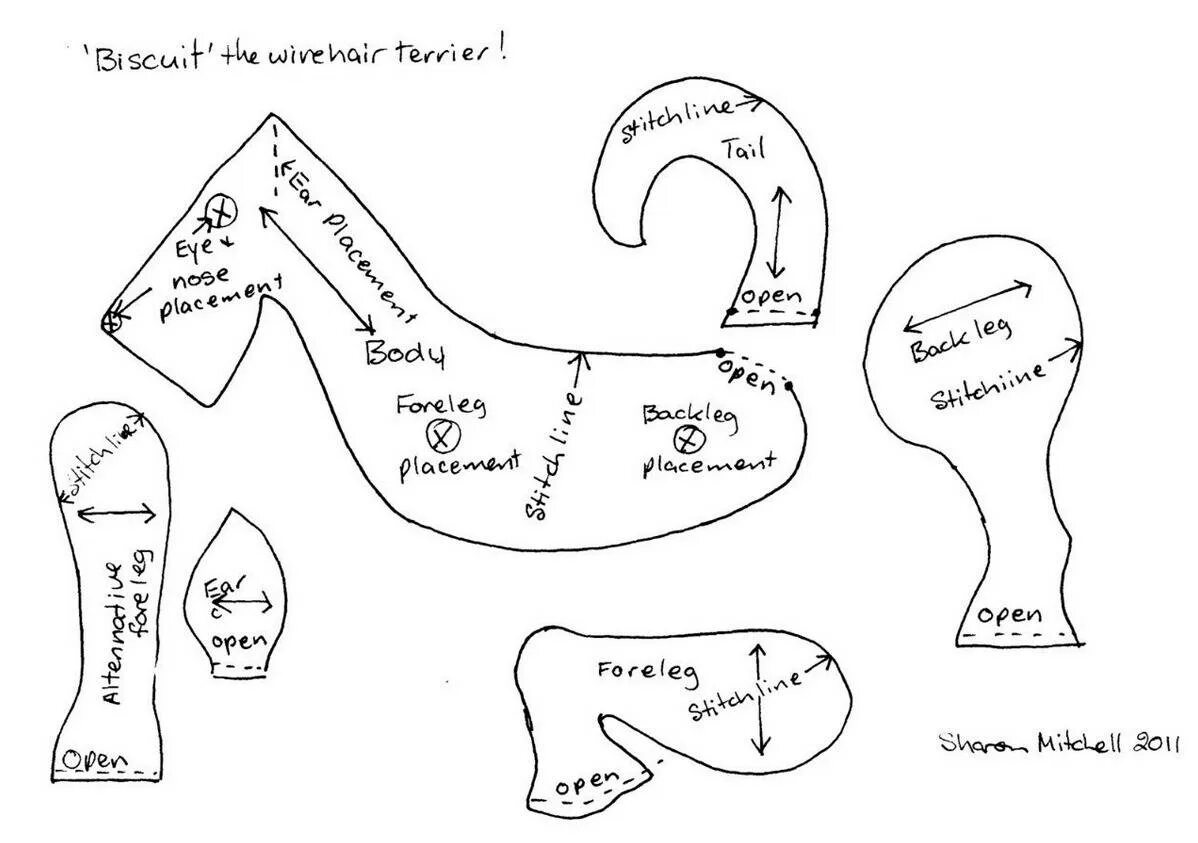 'Biscuit' the wirehair terrier!
Stitchline
Tail
open
Ear Placement
Eye &
nose
placement
Body
Foreleg
placement
Stitchline
open
Backleg
placement
Backleg
Stitchiine
open
Stitchline
Alternative
foreleg
Open
Ear
open
Foreleg
Stitchline
open
Sharon Mitchell 2011